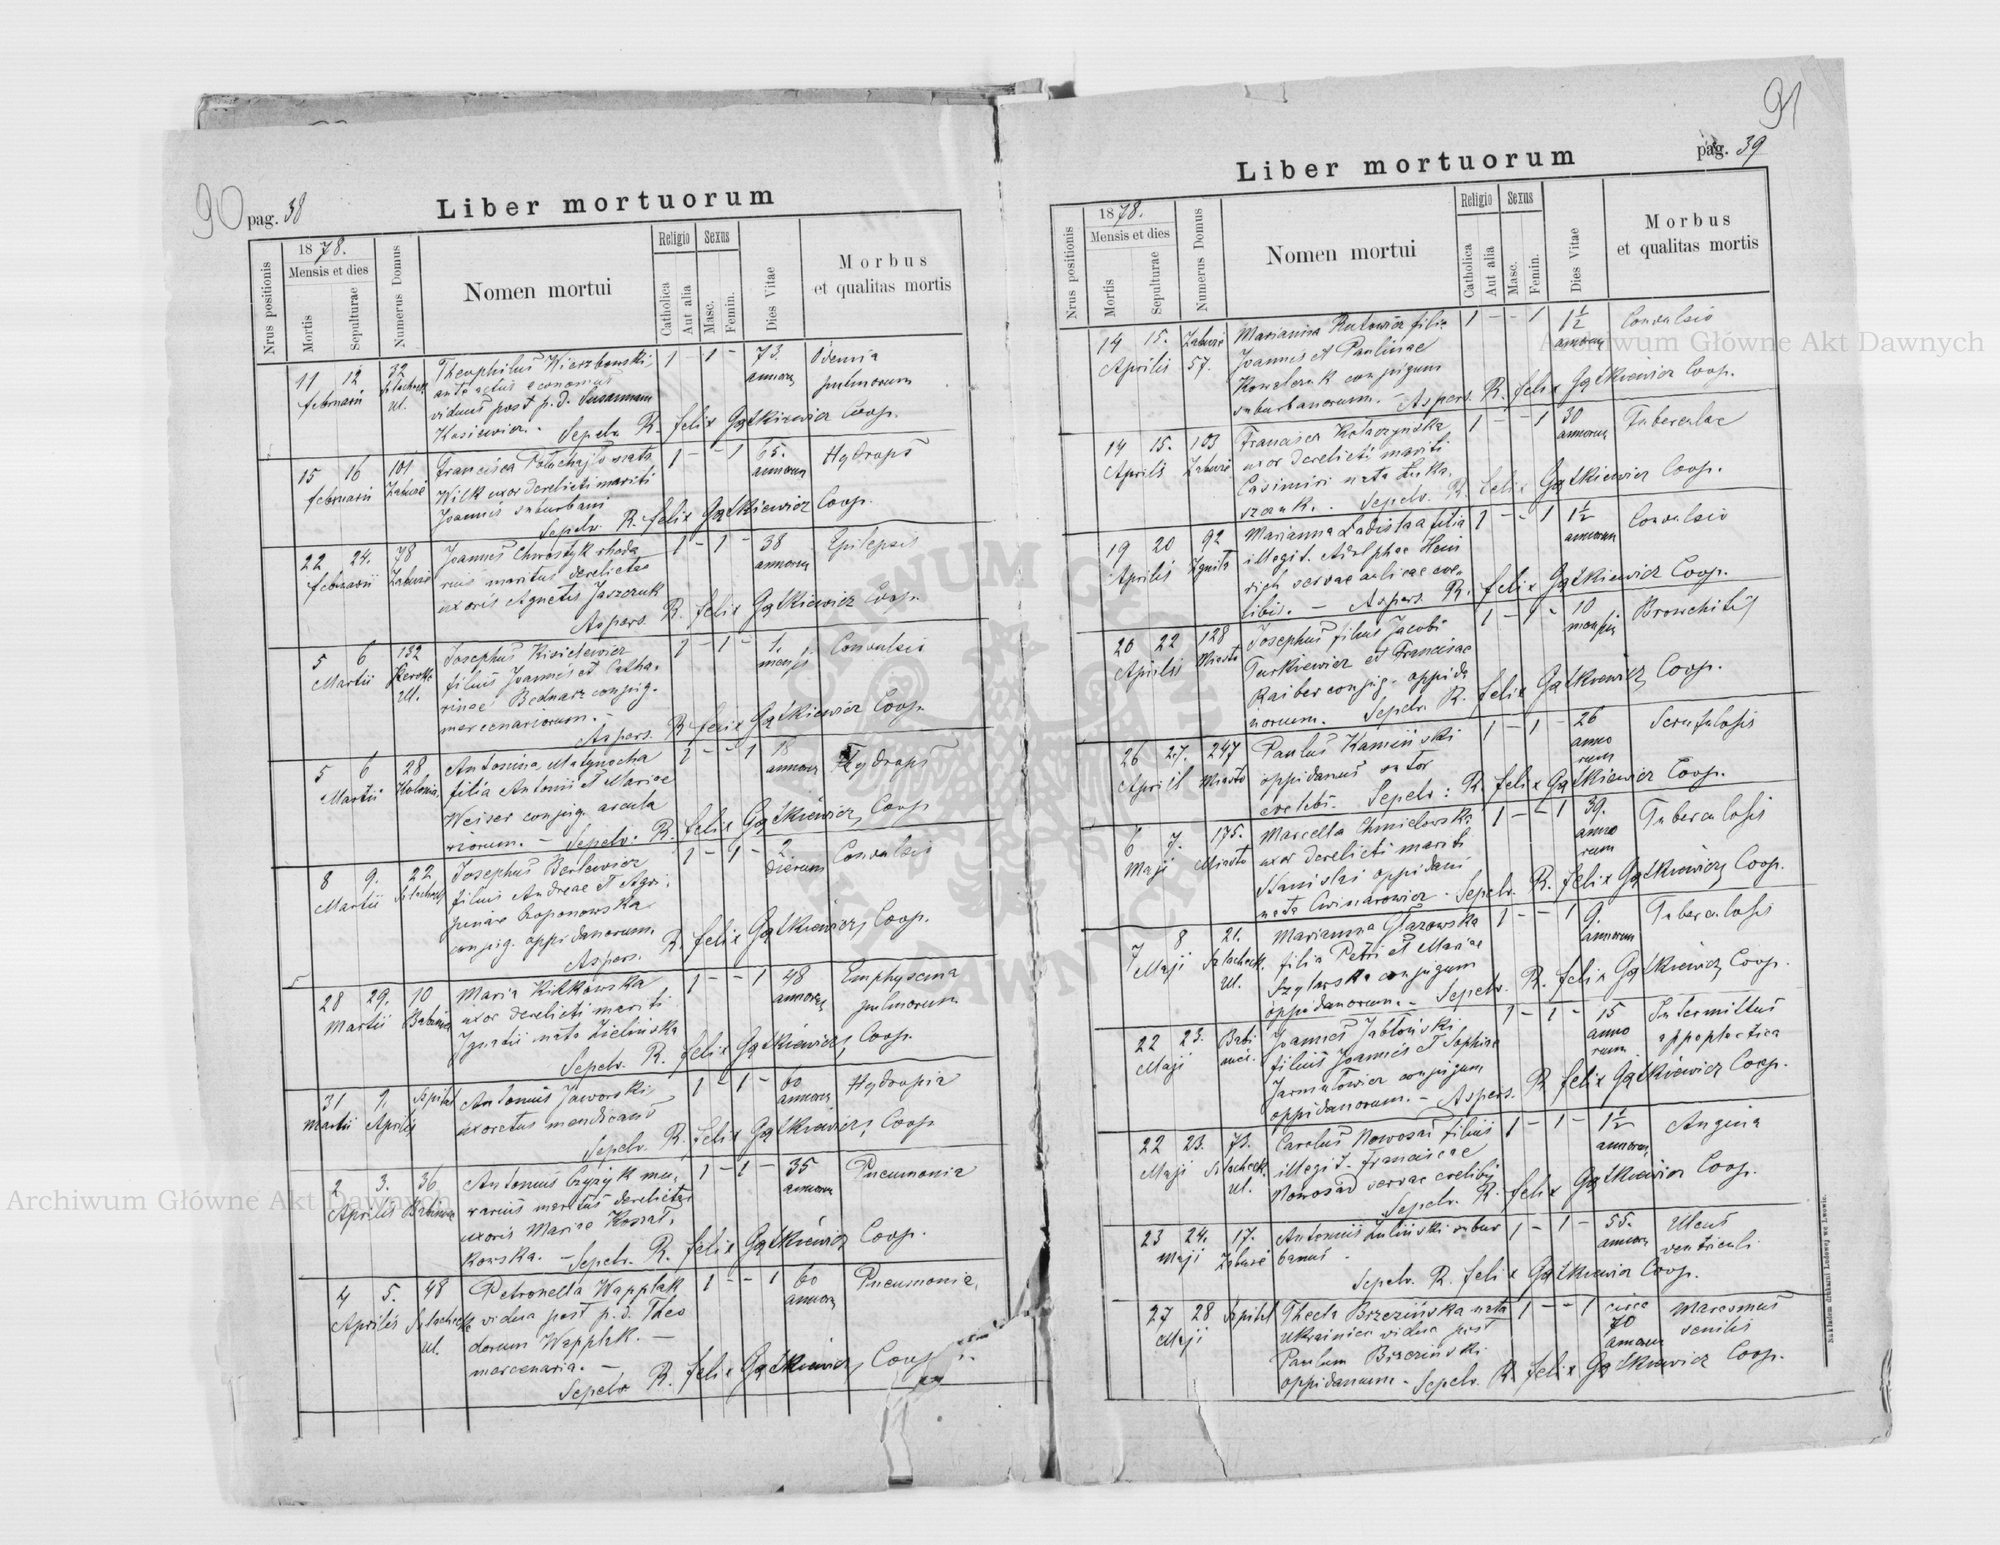 90 pag. 38
Liber mortuorum
Nrus positionis
1878.
Mensis et dies
Mortis
Sepulturae
Numerus Domus
Nomen mortui
Religio
Catholica
Aut alia
Sexus
Masc.
Femin.
Dies Vitae
Morbus
et qualitas mortis
11 12 32 Theophilus Wierzbowski, 1 - 1 - 73. Odemia
februarii Szlacheck ul. annorum pulmonum
viduus post p. d. Susannam
Kasiewicz. - Sepelv. R. felix Gątkiewicz Coop.
15 16 101 Francisca nata 1 - - 1 65. Hydrops
februarii Zaburze Wilk uxor derelicti mariti annorum
Joannis suburbani
Sepelv. R. felix Gątkiewicz Coop.
22 24. 78 Joannes Chwostyk rheda 1 - 1 - 38 Epilepsis
februarii Zaburze rius maritus derelictae annorum
uxoris Agnetis Jaszczuk
Aspers. R. felix Gątkiewicz Coop.
5 6 132 Josephus Kisielewicz 1 - 1 - 1. Convulsio
Martii ul. filius Joannis et Catha- mensis
rinae Bednarz conjug.
mercenariorum. -
Aspers. R. felix Gątkiewicz Coop.
5 6 28 Antonina Matynocha 1 - - 1 18 Hydrops
Martii Kolonia filia Antonii et Mariae annorum
Weiser conjug. arcula
riorum. - Sepelv: R. felix Gątkiewicz, Coop
8 9. 22 Josephus Berlewicz 1 - 1 - 2 Convulsio
Martii Szlacheck filius Andreae et Agri- dierum
pinae Czoponowska
conjug. oppidanorum.
Aspers. R. felix Gątkiewicz, Coop.
28 29. 10 Maria Kitkowska 1 - - 1 48 Emphysema
Martii Babinice uxor derelicti mariti annorum pulmonum
Ignatii nata Zielinska
Sepelv. R. felix Gątkiewicz, Coop.
31 1. Szpital Antonius Jaworski, 1 - 1 - 60 Hydropia
Martii Aprilis uxoratus mendicans annorum
Sepelv. R. felix Gątkiewicz, Coop
2 3. 36 Antonius Czyzyk mu- 1 - 1 - 35 Pneumonia
Aprilis Babinice rarius maritus derelictae annorum
uxoris Mariae Kossat-
kowska. - Sepelv. R. felix Gątkiewicz Coop.
4 5. 48 Petronella Wapplak 1 - - 1 60 Pneumonia,
Aprilis Szlacheck ul. vidua post p. d. Theo annorum
dorum Wapplak. -
mercenaria. -
Sepelv R. felix Gątkiewicz, Coop.
91
pag. 39
Liber mortuorum
Nrus positionis
1878.
Mensis et dies
Mortis
Sepulturae
Numerus Domus
Nomen mortui
Religio
Catholica
Aut alia
Sexus
Masc.
Femin.
Dies Vitae
Morbus
et qualitas mortis
14 15. Zaburze Marianna Rutowicz filia 1 - - 1 1½ Convulsio
Aprilis 57. Joannis et Paulinae annorum
Kowalczuk conjugum
suburbanorum. - Aspers. R. felix Gątkiewicz Coop.
14 15. 103 Francisca Kołaczynska 1 - - 1 30 Tuberculae
Aprilis Zaburze uxor derelicti mariti annorum
Casimiri nata Łuka-
szczuk. - Sepelv. R. felix Gątkiewicz Coop.
19 20 92 Marianna Ladislaa filia 1 - - 1 1½ Convulsio
Aprilis illegit. Adelphae Hein annorum
rich servae aulicae coe-
libis. - Aspers. R. felix Gątkiewicz Coop.
20 22 128 Josephus filius Jacobi 1 - 1 - 10 Bronchitis
Aprilis Miasto Turkiewicz et Franciscae mensium
Raiber conjug. oppida
norum. Sepelv. R. felix Gątkiewicz, Coop.
26 27. 247 Paulus Kaminski 1 - 1 - 26 Scrufulosis
Aprilis Miasto oppidanus sutor anno
rum
coelebs. Sepelv: R. felix Gątkiewicz Coop.
6 7. 175. Marcella Chmielowska 1 - - 1 39. Tuberculosis
Maji Miasto uxor derelicti mariti anno
Stanislai oppidani rum
nata Cwinarowicz - Sepelv. R. felix Gątkiewicz, Coop.
7 8 21. Marianna Głazowska 1 - - 1 9. Tuberculosis
Maji Szlacheck. ul. filia Petri et Mariae annorum
Szylarska conjugum
oppidanorum. - Sepelv. R. felix Gątkiewicz, Coop.
22 23. Babi Joannes Jabłoński 1 - 1 - 15 Intermittens
Maji nice. filius Joannis et Sophiae anno appoplectica
Jarmułowicz conjugum rum
oppidanorum. - Aspers. R. felix Gątkiewicz Coop.
22 23. 73. Carolus Nowosad filius 1 - 1 - 1½ Angina
Maji Szlacheck. ul. illegit. Franciscae annorum
Nowosad servae coelibis
Sepelv. R. felix Gątkiewicz Coop.
23 24. 17. Antonius Luliński subur 1 - 1 - 55. Ulcus
Maji Zaburze banus. annorum ventriculi
Sepelv. R. felix Gątkiewicz Coop.
27 28 Szpital Thecla Brzezińska nata 1 - - 1 circa Marasmus
Maji Ukrainica vidua post 70 senilis
Paulum Brzeziński annorum
oppidanum - Sepelv. R. felix Gątkiewicz Coop.
Nakładem drukarni Ludowej we Lwowie.
Archiwum Główne Akt Dawnych
Archiwum Główne Akt Dawnych
ARCHIWUM GŁÓWNE AKT DAWNYCH